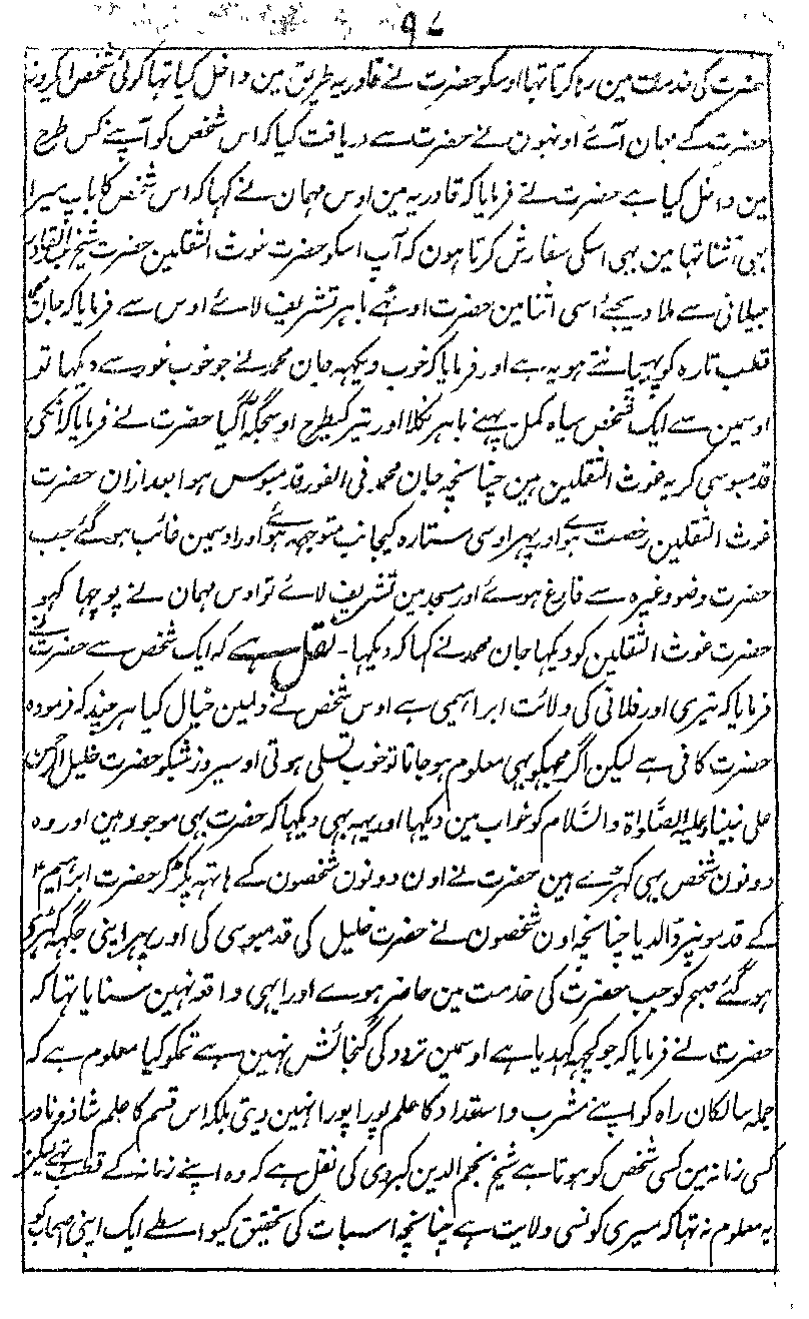 ۹۷
حضرت کی خدمت مین رہا کرتا تہا اوسکو حضرت نے قادریہ طریق مین داخل کیا تہا کوئی شخص اکروز
حضرت کے مہمان آئے اونہون نے حضرت سے دریافت کیا کہ اس شخص کو آپنے کس طرح
مین داخل کیا ہے حضرت نے فرمایا کہ قادریہ مین اوس مہمان نے کہا کہ اس شخص کا باپ میرا
بہی آشنا تہا مین بہی اسکی سفارش کرتا ہون کہ آپ اسکو حضرت غوث الثقلین حضرت شیخ عبدالقادر
جیلانی سے ملا دیجئے اسی اثنا مین حضرت اوٹہے باہر تشریف لائے اوس سے فرمایا کہ جان محمد
قطب تارہ کو پہچانتے ہو یہ ہے اور فرمایا کہ خوب دیکہہ جان محمد نے جو خوب غور سے دیکہا تو
اوسمین سے ایک شخص سیاہ کمل پہنے باہر نکلا اور تیر کیطرح اوسجگہ آگیا حضرت نے فرمایا کہ انکی
قدمبوسی کر یہ غوث الثقلین ہین چنانچہ جان محمد فی الفور قدمبوس ہوا بعد ازان حضرت
غوث الثقلین رخصت ہوئے اور پہر اوسی ستارہ کیجانب متوجہہ ہوئے اور اوسمین غائب ہو گئے جب
حضرت وضو وغیرہ سے فارغ ہوئے اور مسجد مین تشریف لائے تو اوس مہمان نے پوچہا کہو
حضرت غوث الثقلین کو دیکہا جان محمد نے کہا کہ دیکہا۔ نقل ہے کہ ایک شخص سے حضرت نے
فرمایا کہ تیری اور فلانی کی ولائت ابراہیمی ہے اوس شخص نے دلمین خیال کیا ہر چند کہ فرمودہ
حضرت کافی ہے لیکن اگر مجہکو بہی معلوم ہو جاتا تو خوب تسلی ہوتی اوسیروز شبکو حضرت خلیل الرحمن
علی نبینا وعلیہ الصلوٰۃ والسلام کو خواب مین دیکہا اور یہہ بہی دیکہا کہ حضرت بہی موجود ہین اور وہ
دونون شخص بہی کہڑے ہین حضرت نے اون دونون شخصون کے ہاتہہ پکڑ کر حضرت ابراہیم ؑ
کے قدمونپر ڈالدیا چنانچہ اون شخصون نے حضرت خلیل کی قدمبوسی کی اور پہر اپنی جگہہ کہڑے
ہو گئے صبح کو جب حضرت کی خدمت مین حاضر ہوے اور ابہی واقعہ نہین سنایا تہا کہ
حضرت نے فرمایا کہ جو کچہہ کہدیا ہے اوسمین تردد کی گنجائش نہین ہے تمکو کیا معلوم ہے کہ
جملہ سالکان راہ کو اپنے مشرب و استعداد کا علم پورا پورا نہین دیتی بلکہ اس قسم کا علم شاذ و نادر
کسی زمانہ مین کسی شخص کو ہوتا ہے شیخ نجم الدین کبروی کی نقل ہے کہ وہ اپنے زمانہ کے قطب تہے لیکن
یہ معلوم نہ تہا کہ میری کونسی ولایت ہے چنانچہ اسبات کی تحقیق کیواسطے ایک اپنی اصحاب کو